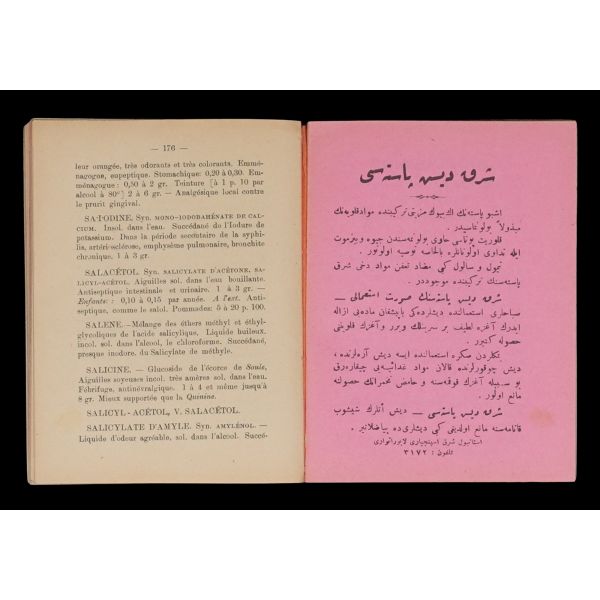 — 176 —
leur orangée, très odorants et très colorants. Emmé-
nagogue, eupeptique. Stomachique: 0,20 à 0,30. Em-
ménagogue: 0,50 à 2 gr. Teinture [à 1 p. 10 par
alcool à 80°] 2 à 6 gr. — Analgésique local contre
le prurit gingival.
SAIODINE. Syn. MONO-IODOBÉHÉNATE DE CAL-
CIUM. Insol. dans l'eau. Succédané de l'Iodure de
potassium. Dans la période secondaire de la syphi-
lis, artériosclérose, emphysème pulmonaire, bronchite
chronique. 1 à 3 gr.
SALACÉTOL. Syn. SALICYLATE D'ACÉTONE, SA-
LICYL-ACÉTOL. Aiguilles sol. dans l'eau bouillante.
Antiseptique intestinale et urinaire. 1 à 3 gr. —
Enfants: : 0,10 à 0,15 par année. A l'ext. Anti-
septique, comme le salol. Pommades: 5 à 20 p. 100.
SALENE. —Mélange des éthers méthyl et éthyl-
glycoliques de l'acide salicylique. Liquide huileux.
incol. sol. dans l'alcool, le chloroforme. Succédané,
presque inodore. du Salicylate de méthyle.
SALICINE. — Glucoside de l'écorce de Saule,
Aiguilles soyeuses incol. très amères sol. dans l'eau.
Fébrifuge, antinévralgique. 1 à 4 et même jusqu'à
8 gr. Mieux supportée que la Quinine.
SALICYL - ACÉTOL, V. SALACÉTOL.
SALICYLATE D'AMYLE. Syn. AMYLÉNOL. —
Liquide d'odeur agréable, sol. dans l'alcool. Succé-
شرق ديش پاستەسی
اشبو پاستەنك اك بيوك مزيتی تركيبنده مواد قلويەنك
مبذولاً بولونماسيدر.
قلوريت پوتاسی حاوی بولونمەسندن جيوه و بيزموت
ايله تداوی اولونانلره بالخاصه توصيه اولونور.
تيمول و سالول كبی مضاد تعفن مواد دخی شرق
پاستەسنك تركيبنده موجوددر.
شرق ديش پاستەسنك صورت استعمالی —
صباحلری استعمالنده ديشلرده كی ياپيشقان مادەيی ازاله
ايدرك آغزه لطيف بر سرينلك ويرر و آغزك قلويتنی
حصوله كتيرر.
يمكلردن صكره استعمالنده ايسه ديش آره لرنده،
ديش چوقورلرنده قالان مواد غدائيەيی چيقاره رق
بو سببله آغزك قوقمەسنه و حامض تخمراتك حصولنه
مانع اولور.
شرق ديش پاستەسی — ديش أتلرك شيشوب
قانامەسنه مانع اولدينی كبی ديشلری ده بياضلاتير.
استانبول شرق اسپنچياری لابوراتواری
تلفون : ٣١٧٢